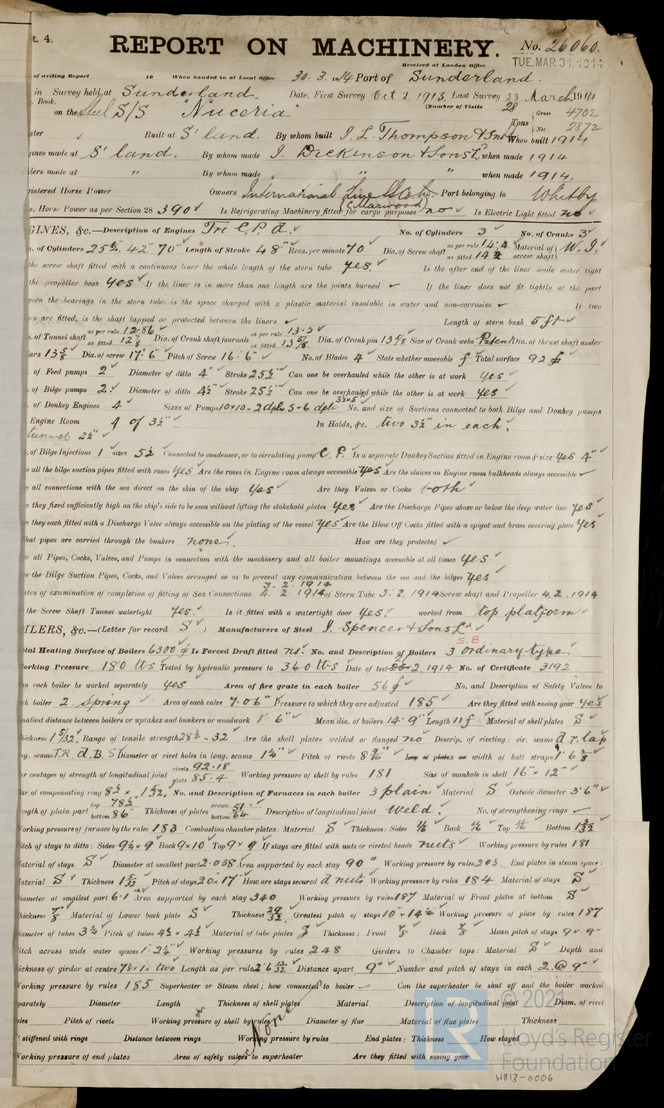 t. 4.
REPORT ON MACHINERY.
No. 26060.
Received at London Office
TUE. MAR. 31. 1914
of writing Report 19 When handed in at Local Office 30. 3. 1914 Port of Sunderland.
in Survey held at Sunderland. Date, First Survey Oct 2 1913 Last Survey 23 March 1914
Book. (Number of Visits 28
on the Steel S/S "Nuceria" Tons Gross 4702 Net 2872
Built at S'land. By whom built J. L. Thompson & Sons When built 1914
ines made at S'land. By whom made J. Dickinson & Sons Ld. when made 1914
ilers made at " By whom made " " when made 1914.
istered Horse Power Owners International Line (Marwood) Port belonging to Whitby
. Horse Power as per Section 28 390 Is Refrigerating Machinery fitted for cargo purposes no Is Electric Light fitted no
GINES, &c.—Description of Engines Tri C.P.d. No. of Cylinders 3 No. of Cranks 3
. of Cylinders 25½" 42" 70" Length of Stroke 48" Revs. per minute 70 Dia. of Screw shaft as per rule 14.4 as fitted 14¾ Material of screw shaft W. I.
the screw shaft fitted with a continuous liner the whole length of the stern tube yes. Is the after end of the liner made water tight
the propeller boss yes If the liner is in more than one length are the joints burned If the liner does not fit tightly at the part
een the bearings in the stern tube, is the space charged with a plastic material insoluble in water and non-corrosive If two
rs are fitted, is the shaft lapped or protected between the liners Length of stern bush 5 ft
. of Tunnel shaft as per rule 12.86 as fitted Dia. of Crank shaft journals as per rule 13.5 as fitted 13⅝ Dia. of Crank pin 13⅝ Size of Crank webs Patent Dia. of thrust shaft under
ars 13⅝ Dia. of screw 17'.6" Pitch of Screw 16'.6" No. of Blades 4 State whether moveable f Total surface 92
. of Feed pumps 2 Diameter of ditto 4" Stroke 25½" Can one be overhauled while the other is at work yes
. of Bilge pumps 2. Diameter of ditto 4½" Stroke 25½" Can one be overhauled while the other is at work yes
. of Donkey Engines 4 Sizes of Pumps No. and size of Suctions connected to both Bilge and Donkey pumps
Engine Room 4 of 3½" In Holds, &c. two 3½" in each.
tunnel 2½"
. of Bilge Injections 1 sizes 5½ Connected to condenser, or to circulating pump C. P. Is a separate Donkey Suction fitted in Engine room & size yes 4"
e all the bilge suction pipes fitted with roses yes Are the roses in Engine room always accessible yes Are the sluices on Engine room bulkheads always accessible
e all connections with the sea direct on the skin of the ship yes Are they Valves or Cocks both
e they fixed sufficiently high on the ship's side to be seen without lifting the stokehold plates yes Are the Discharge Pipes above or below the deep water line yes
e they each fitted with a Discharge Valve always accessible on the plating of the vessel yes Are the Blow Off Cocks fitted with a spigot and brass covering plate yes
hat pipes are carried through the bunkers none How are they protected
e all Pipes, Cocks, Valves, and Pumps in connection with the machinery and all boiler mountings accessible at all times yes
e the Bilge Suction Pipes, Cocks, and Valves arranged so as to prevent any communication between the sea and the bilges yes
tes of examination of completion of fitting of Sea Connections 4. 2. 1914 of Stern Tube 3. 2. 1914 Screw shaft and Propeller 4. 2. 1914
the Screw Shaft Tunnel watertight yes. Is it fitted with a watertight door yes. worked from top platform
ILERS, &c.—(Letter for record S) Manufacturers of Steel J. Spencer & Sons Ld
S.B
otal Heating Surface of Boilers 6300 Is Forced Draft fitted no. No. and Description of Boilers 3 ordinary type.
orking Pressure 180 lbs Tested by hydraulic pressure to 360 lbs Date of test 2. 1914 No. of Certificate 3192
an each boiler be worked separately yes Area of fire grate in each boiler 56 No. and Description of Safety Valves to
ch boiler 2 Spring Area of each valve 7.06" Pressure to which they are adjusted 185 Are they fitted with easing gear yes
mallest distance between boilers or uptakes and bunkers or woodwork 1' 6" Mean dia. of boilers 14' 9" Length 11 f Material of shell plates S
hickness 1 5/32 Range of tensile strength 28½-32 Are the shell plates welded or flanged no Descrip. of riveting: cir. seams d. r. lap
ng. seams T.R. d. B. S Diameter of rivet holes in long. seams Pitch of rivets 8 width of butt straps
er centages of strength of longitudinal joint rivets 92.18 plate 85.4 Working pressure of shell by rules 181 Size of manhole in shell 16" x 12"
ize of compensating ring No. and Description of Furnaces in each boiler 3 plain Material S Outside diameter 3'6"
ngth of plain part top 78½ bottom 86 Thickness of plates crown bottom Description of longitudinal joint weld. No. of strengthening rings
orking pressure of furnace by the rules 183 Combustion chamber plates: Material S Thickness: Sides Back Top Bottom
itch of stays to ditto: Sides 9½ x 9 Back 9 x 10 Top 9 x 9 If stays are fitted with nuts or riveted heads nuts Working pressure by rules 181
aterial of stays S Diameter at smallest part 2.038 Area supported by each stay 90 Working pressure by rules 203. End plates in steam space:
aterial S Thickness Pitch of stays 20 x 17 How are stays secured d nuts Working pressure by rules 184 Material of stays S
iameter at smallest part 6.1 Area supported by each stay 340 Working pressure by rules 187 Material of Front plates at bottom S
hickness ⅞ Material of Lower back plate S Thickness 29/32 Greatest pitch of stays Working pressure of plate by rules 187
iameter of tubes 3¼ Pitch of tubes 4½ x 4½ Material of tube plates S Thickness: Front ⅞ Back Mean pitch of stays 9 x 9
itch across wide water spaces Working pressures by rules 248 Girders to Chamber tops: Material S Depth and
hickness of girder at centre Length as per rule Distance apart 9" Number and pitch of stays in each 2 @ 9"
orking pressure by rules 185 Superheater or Steam chest; how connected to boiler Can the superheater be shut off and the boiler worked
parately Diameter Length Thickness of shell plates Material Description of longitudinal joint Diam. of rivet
oles Pitch of rivets Working pressure of shell by rules Diameter of flue Material of flue plates Thickness
None
stiffened with rings Distance between rings Working pressure by rules End plates: Thickness How stayed
orking pressure of end plates Area of safety valves to superheater Are they fitted with easing gear
© 2021
Lloyd's Register
Foundation
W813-0006